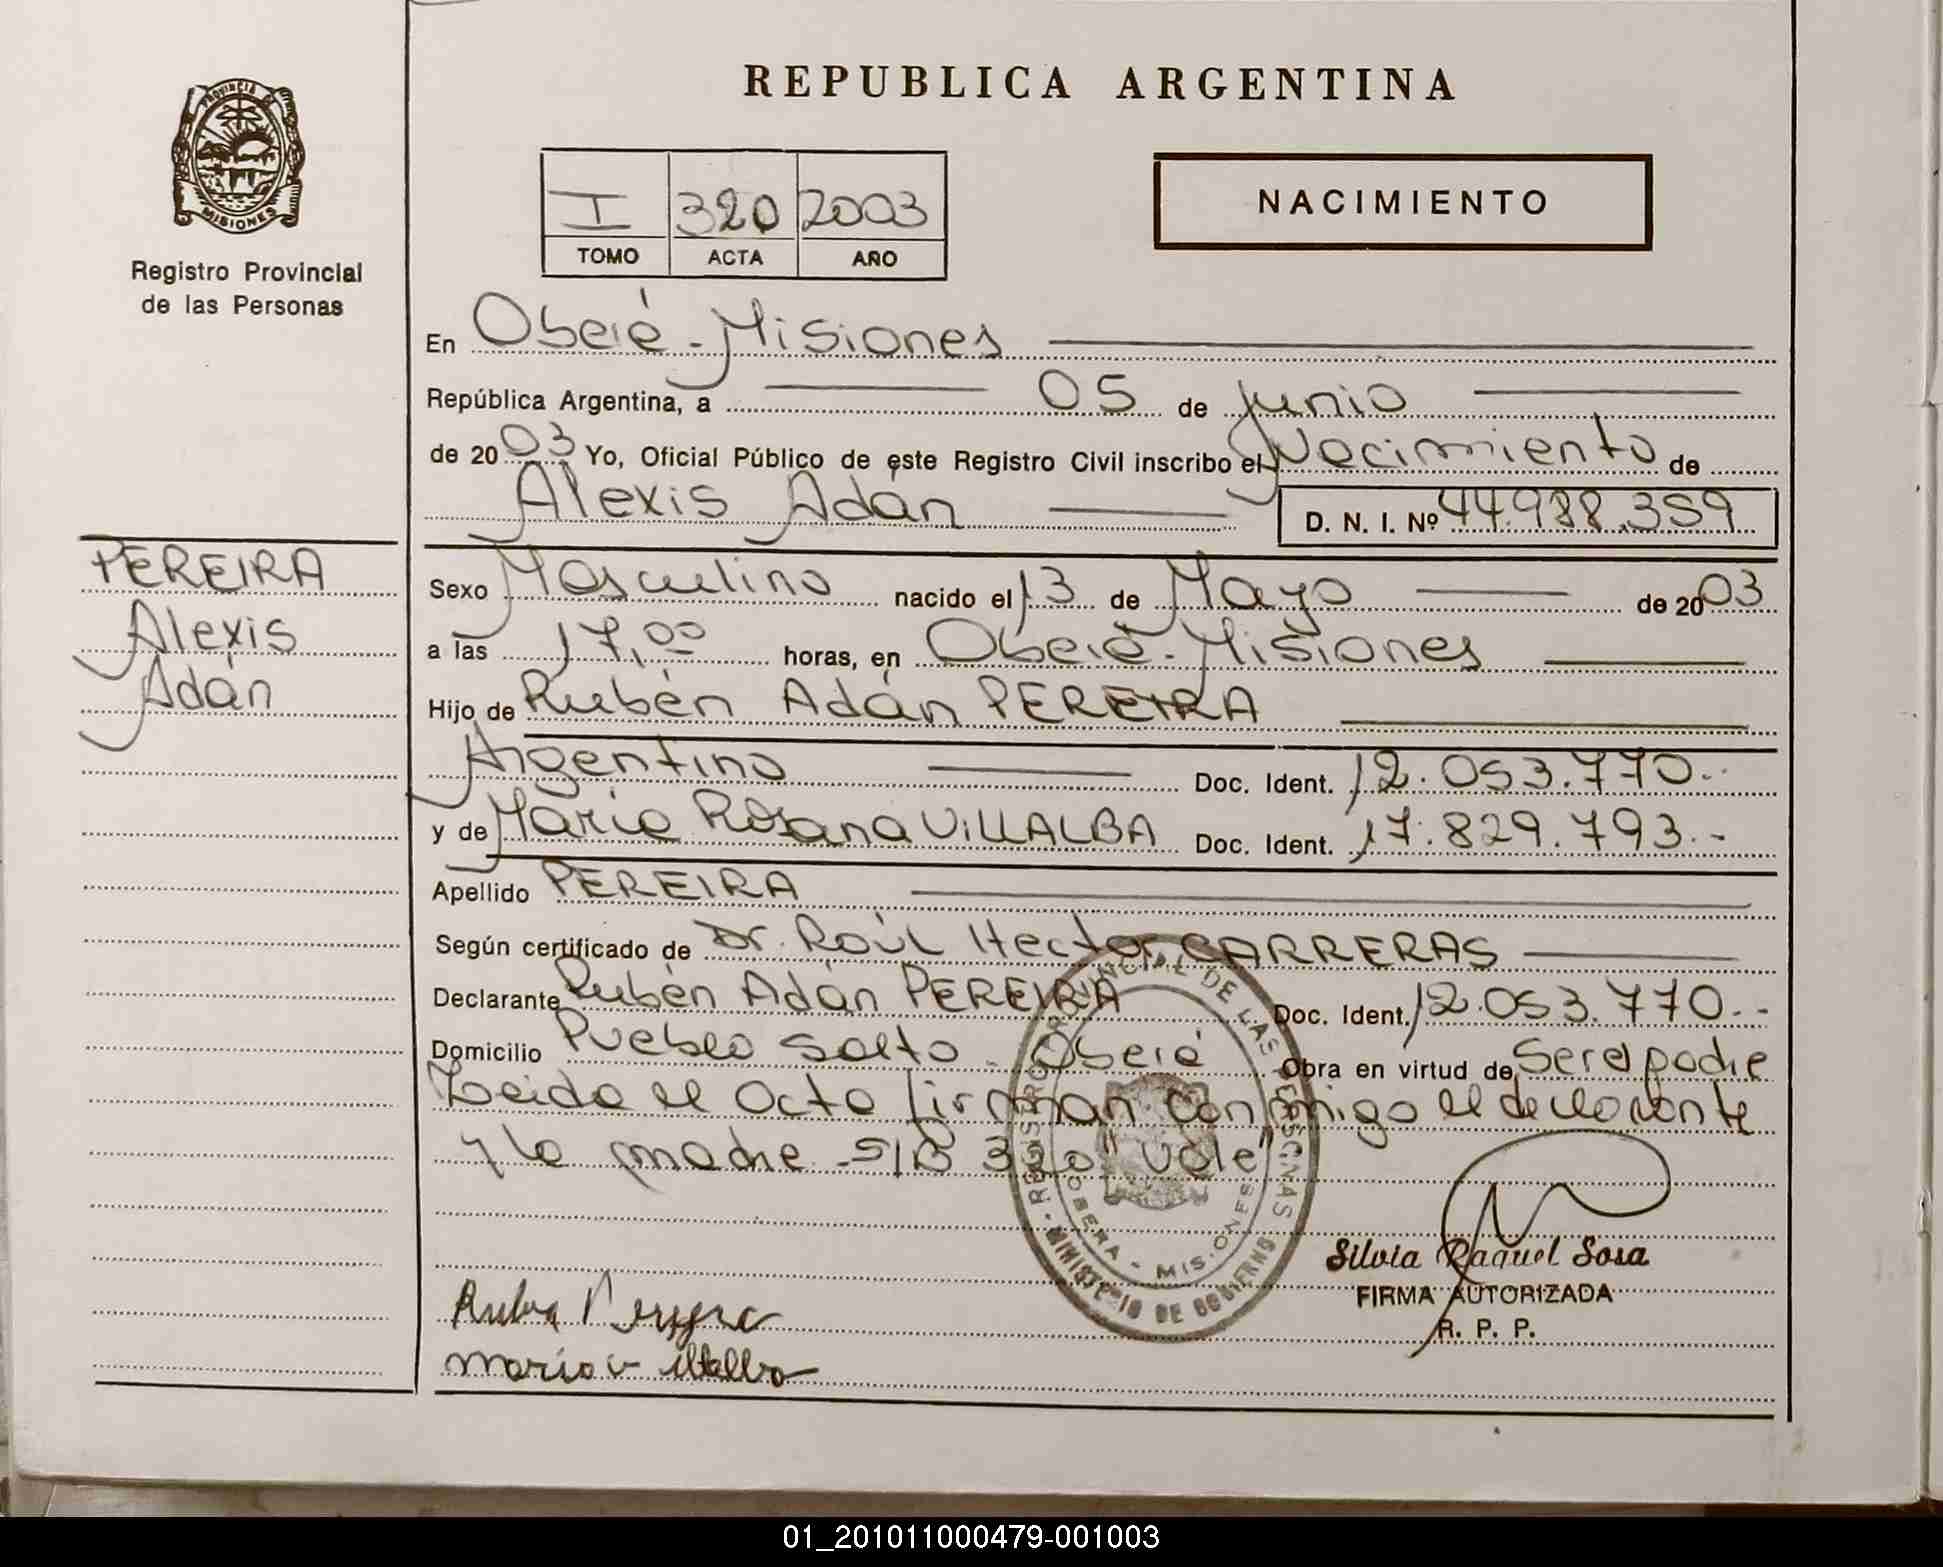 PROVINCIA DE
MISIONES
Registro Provincial
de las Personas
REPUBLICA ARGENTINA
I 320 2003
TOMO ACTA AÑO
NACIMIENTO
En Oberá - Misiones
República Argentina, a 05 de Junio
de 2003 Yo, Oficial Público de este Registro Civil inscribo el Nacimiento de
Alexis Adán D. N. I. Nº 44.988.359
PEREIRA
Alexis
Adán
Sexo Masculino nacido el 13 de Mayo de 2003
a las 17,00 horas, en Oberá - Misiones
Hijo de Rubén Adán PEREIRA
Argentino Doc. Ident. 12.053.770.-
y de María Rosana VILLALBA Doc. Ident. 17.829.793.-
Apellido PEREIRA
Según certificado de Dr. Raúl Hector CARRERAS
Declarante Rubén Adán PEREIRA Doc. Ident. 12.053.770.-
Domicilio Pueblo Salto - Oberá Obra en virtud de Ser el padre
Leida el Acta firman conmigo el declarante
y la madre - S/B 320 "Vale"
REGISTRO PROVINCIAL DE LAS PERSONAS
OBERA - MISIONES
MINISTERIO DE GOBIERNO
Silvia Raquel Sosa
FIRMA AUTORIZADA
R. P. P.
Maria Villalba
01_201011000479-001003